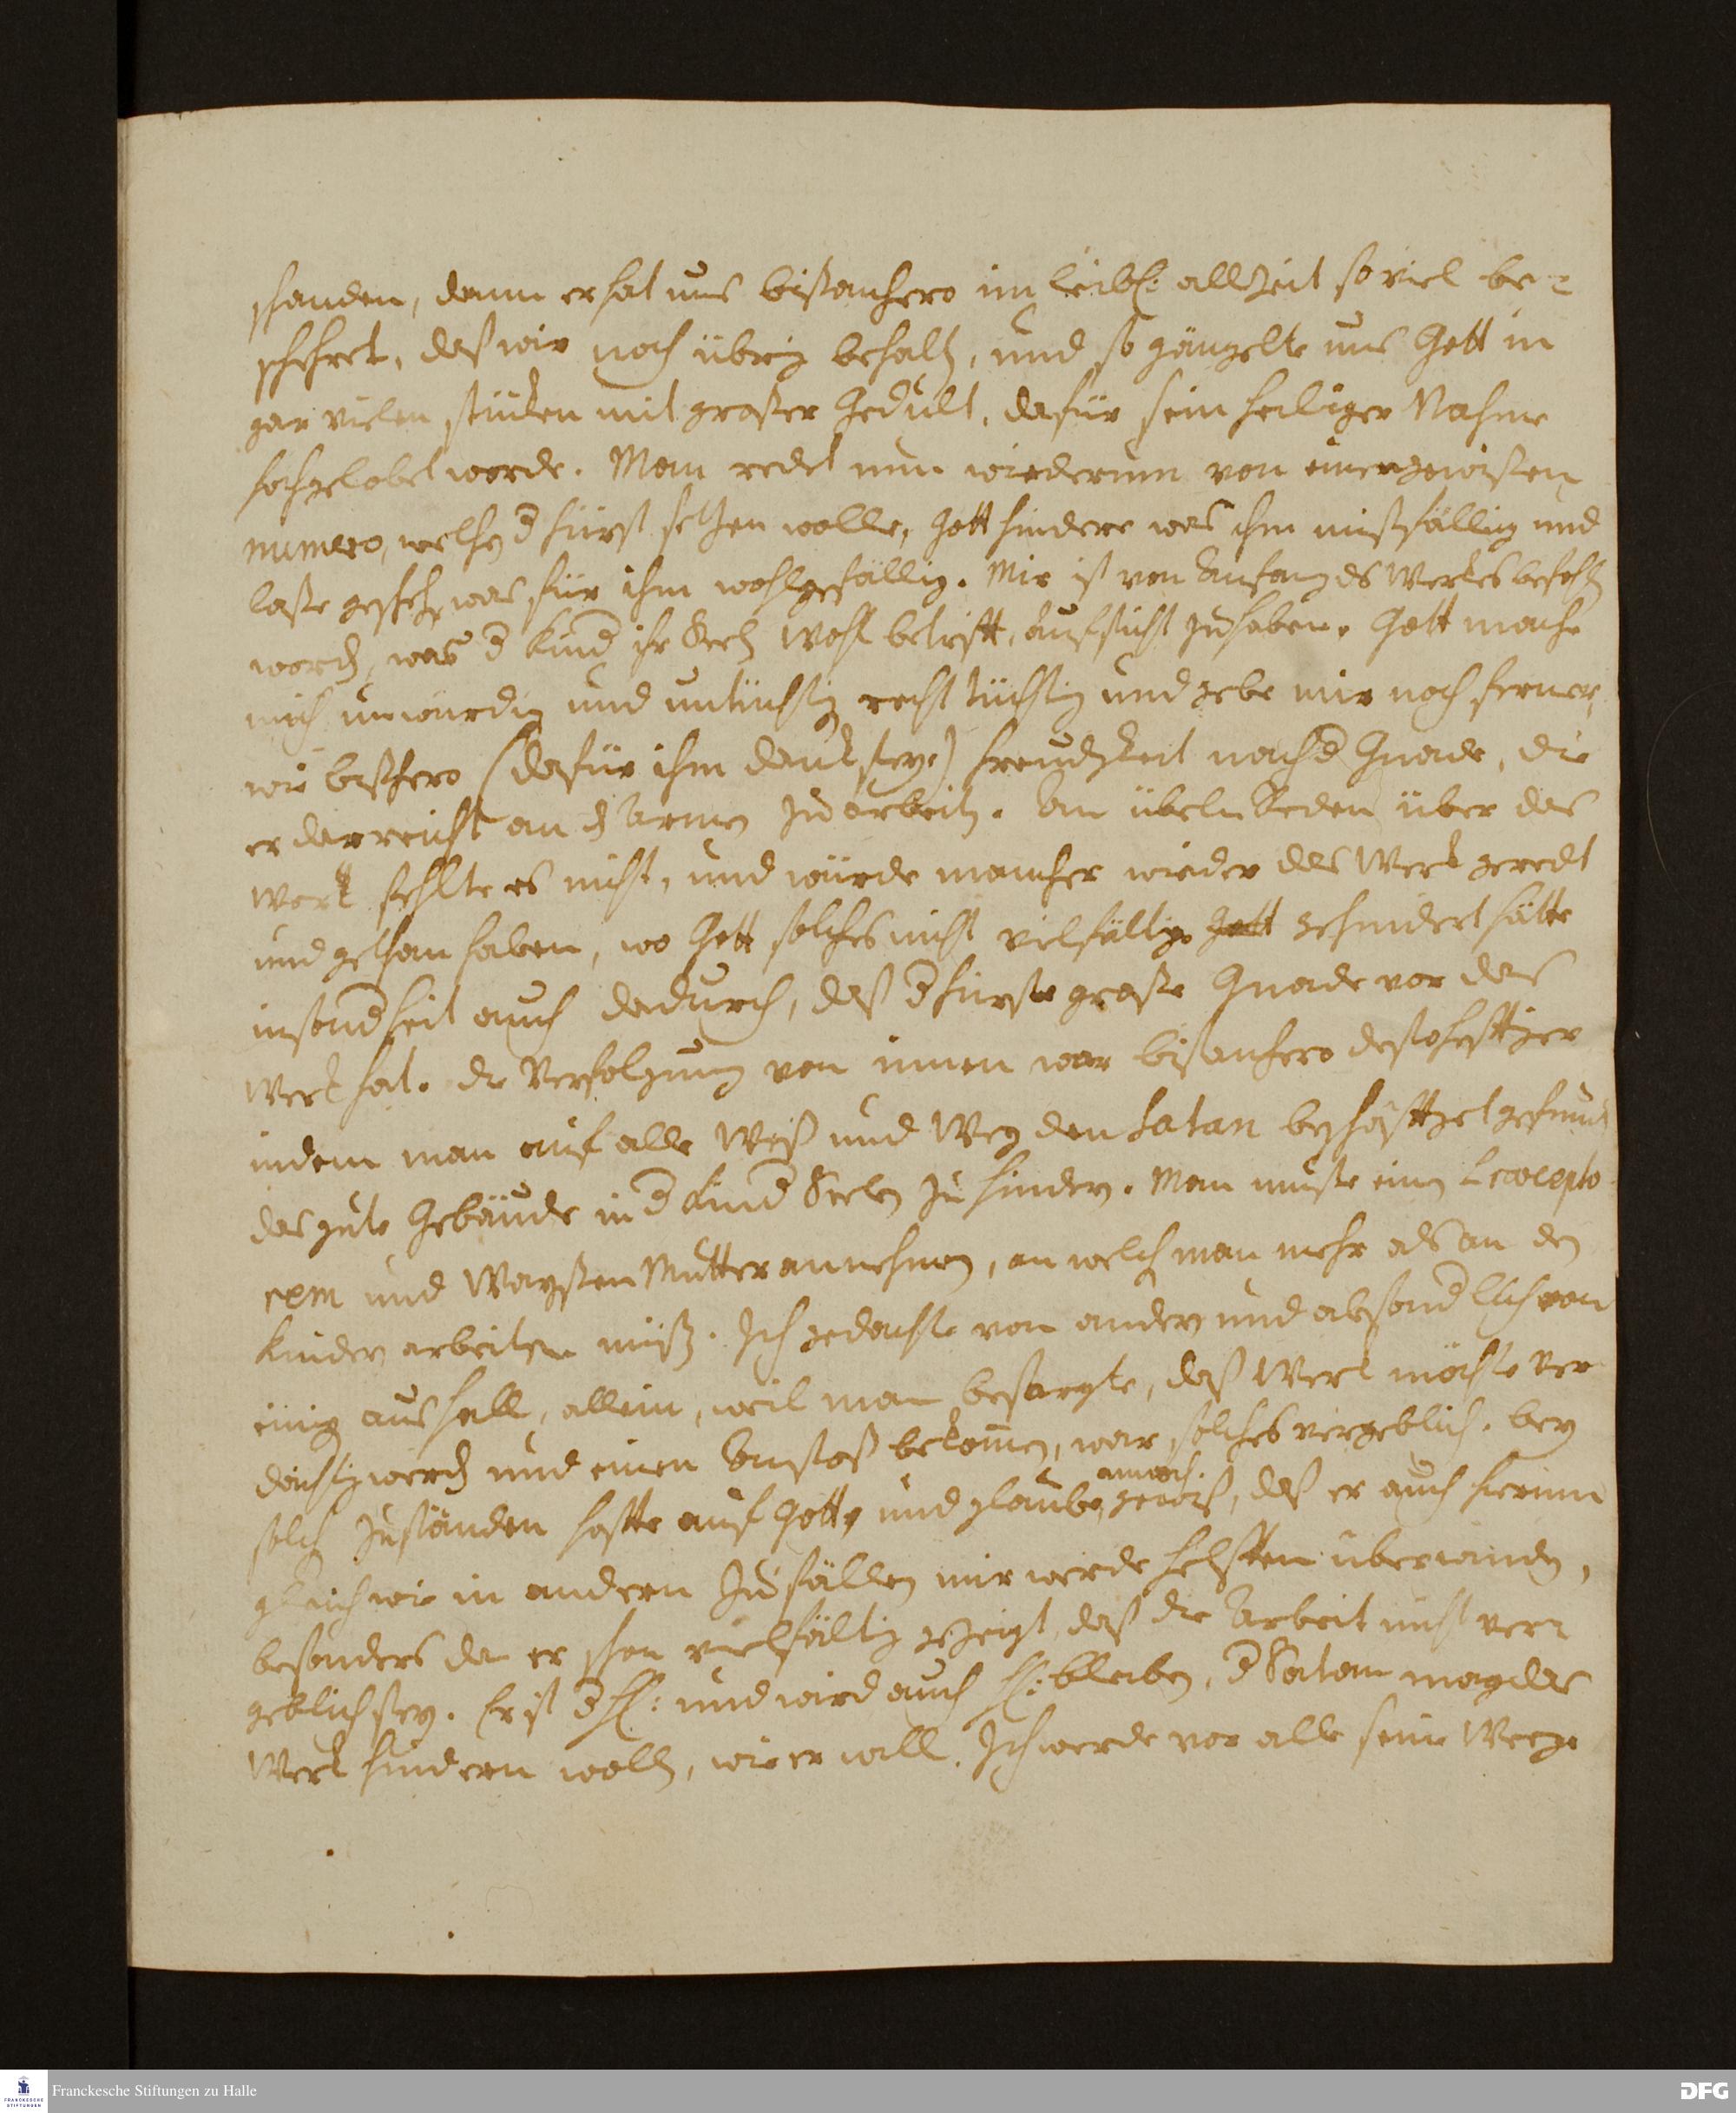 schanden, denn er hat uns bißanhero im leibl: allzeit so viel be-
schehret, daß wir noch übrig behalt, und so gängelte uns Gott in
gar vielen stücken mit großer Gedult, dafür sein heiliger Nahme
hochgelobet werde. Man redet nun wiederum von einer gewißen
numero, welche d Fürst setzen wolle, Gott hindere was ihm mißfällig und
laße gescheh, was für ihm wohlgefällig. Mir ist von Anfang des Werkes befohl
word, was d Kind ihr Seel Wohl betrifft, aufsicht zu haben. Gott mache
mich unwürdig und untüchtig recht tüchtig und gebe mir noch ferner,
wie bißhero (dafür ihm dank seye) freudigkeit nach d Gnade, die
er darreicht an d Armen zu arbeit. An übeln Reden über das
Werk fehlte es nicht, und würde mancher wieder das Werk geredt
und gethan haben, wo Gott solches nicht vielfältig gehindert hätte
insond heit auch dadurch, daß d Fürst große Gnade vor das
Werk hat. Die Verfolgung von innen war bißanhero desto heftiger
indem man auf alle Weiß und Weg den Satan beschäfftiget gefund
das gute Gebäude in d Kind Seelen zu hindern. Man muste einen Praecepto-
rem und Waysen Mutter annehmen, an welch man mehr als an den
Kindern arbeiten muß. Ich gedachte von andern und absond lich von
einig aus Hall, allein, weil man besorgte, daß Werk möchte ver
dächtig werd und einen Anstoß bekomen, war solches vergeblich. bey
solch Zuständen hoffte auf Gott, und glaube annoch gewiß, daß er auch hierinn
gleich wie in andern Zufällen mir werde helffen überwinden,
besonders da er schon vielfältig gezeigt, daß die Arbeit nicht ver-
geblich sey. Er ist d H: und wird auch H: bleiben, d Satan mag das
Werk hindern woll, wie er will. Ich werde vor alle seine Weege
Franckesche Stiftungen zu Halle
DFG